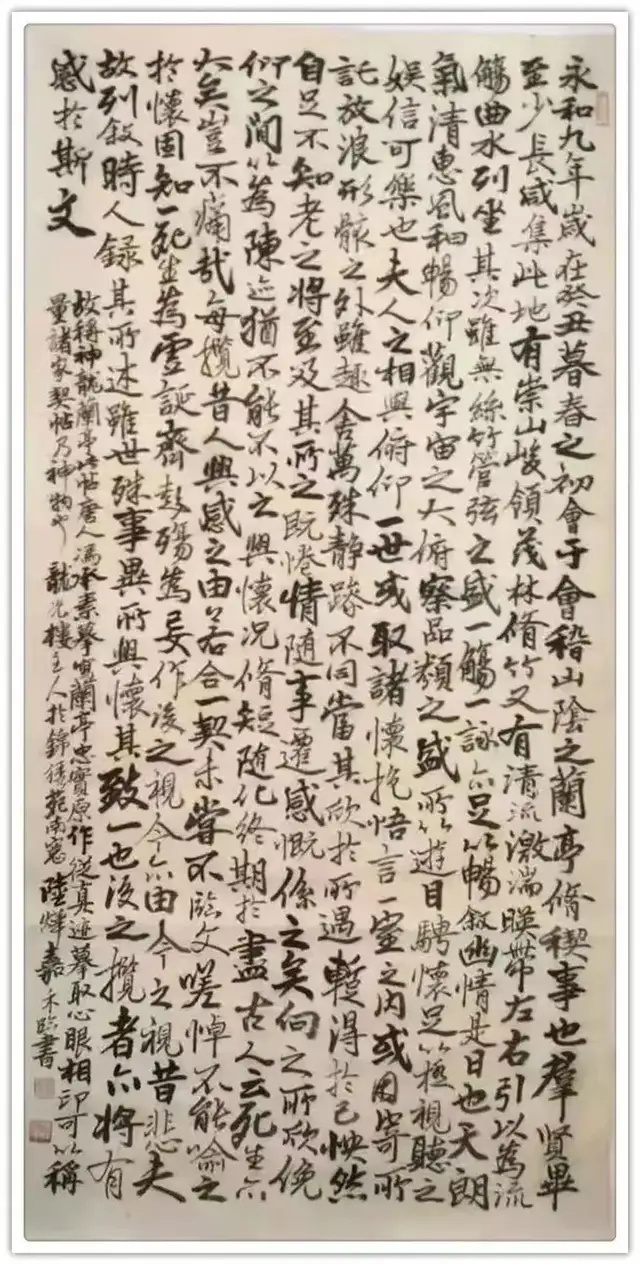 永和九年歲在癸丑暮春之初會于會稽山陰之蘭亭脩稧事也羣賢畢
至少長咸集此地有崇山峻領茂林脩竹又有清流激湍暎帶左右引以為流
觴曲水列坐其次雖無絲竹管弦之盛一觴一詠亦足以暢敘幽情是日也天朗
氣清惠風和暢仰觀宇宙之大俯察品類之盛所以遊目騁懷足以極視聽之
娛信可樂也夫人之相與俯仰一世或取諸懷抱悟言一室之內或因寄所
託放浪形骸之外雖趣舍萬殊靜躁不同當其欣於所遇蹔得於己怏然
自足不知老之將至及其所之既惓情隨事遷感慨係之矣向之所欣俛
仰之間以為陳迹猶不能不以之興懷況脩短隨化終期於盡古人云死生亦
大矣豈不痛哉每攬昔人興感之由若合一契未嘗不臨文嗟悼不能喻之
於懷固知一死生為虛誕齊彭殤為妄作後之視今亦由今之視昔悲夫
故列敘時人錄其所述雖世殊事異所以興懷其致一也後之攬者亦將有
感於斯文
故稱神龍蘭亭此帖唐人馮承素摹寫蘭亭忠實原作從真迹摹取心眼相印可以稱
量諸家契帖乃神物也 龍光樓主人於錦綉苑南窗 陸燁 嘉禾 臨書